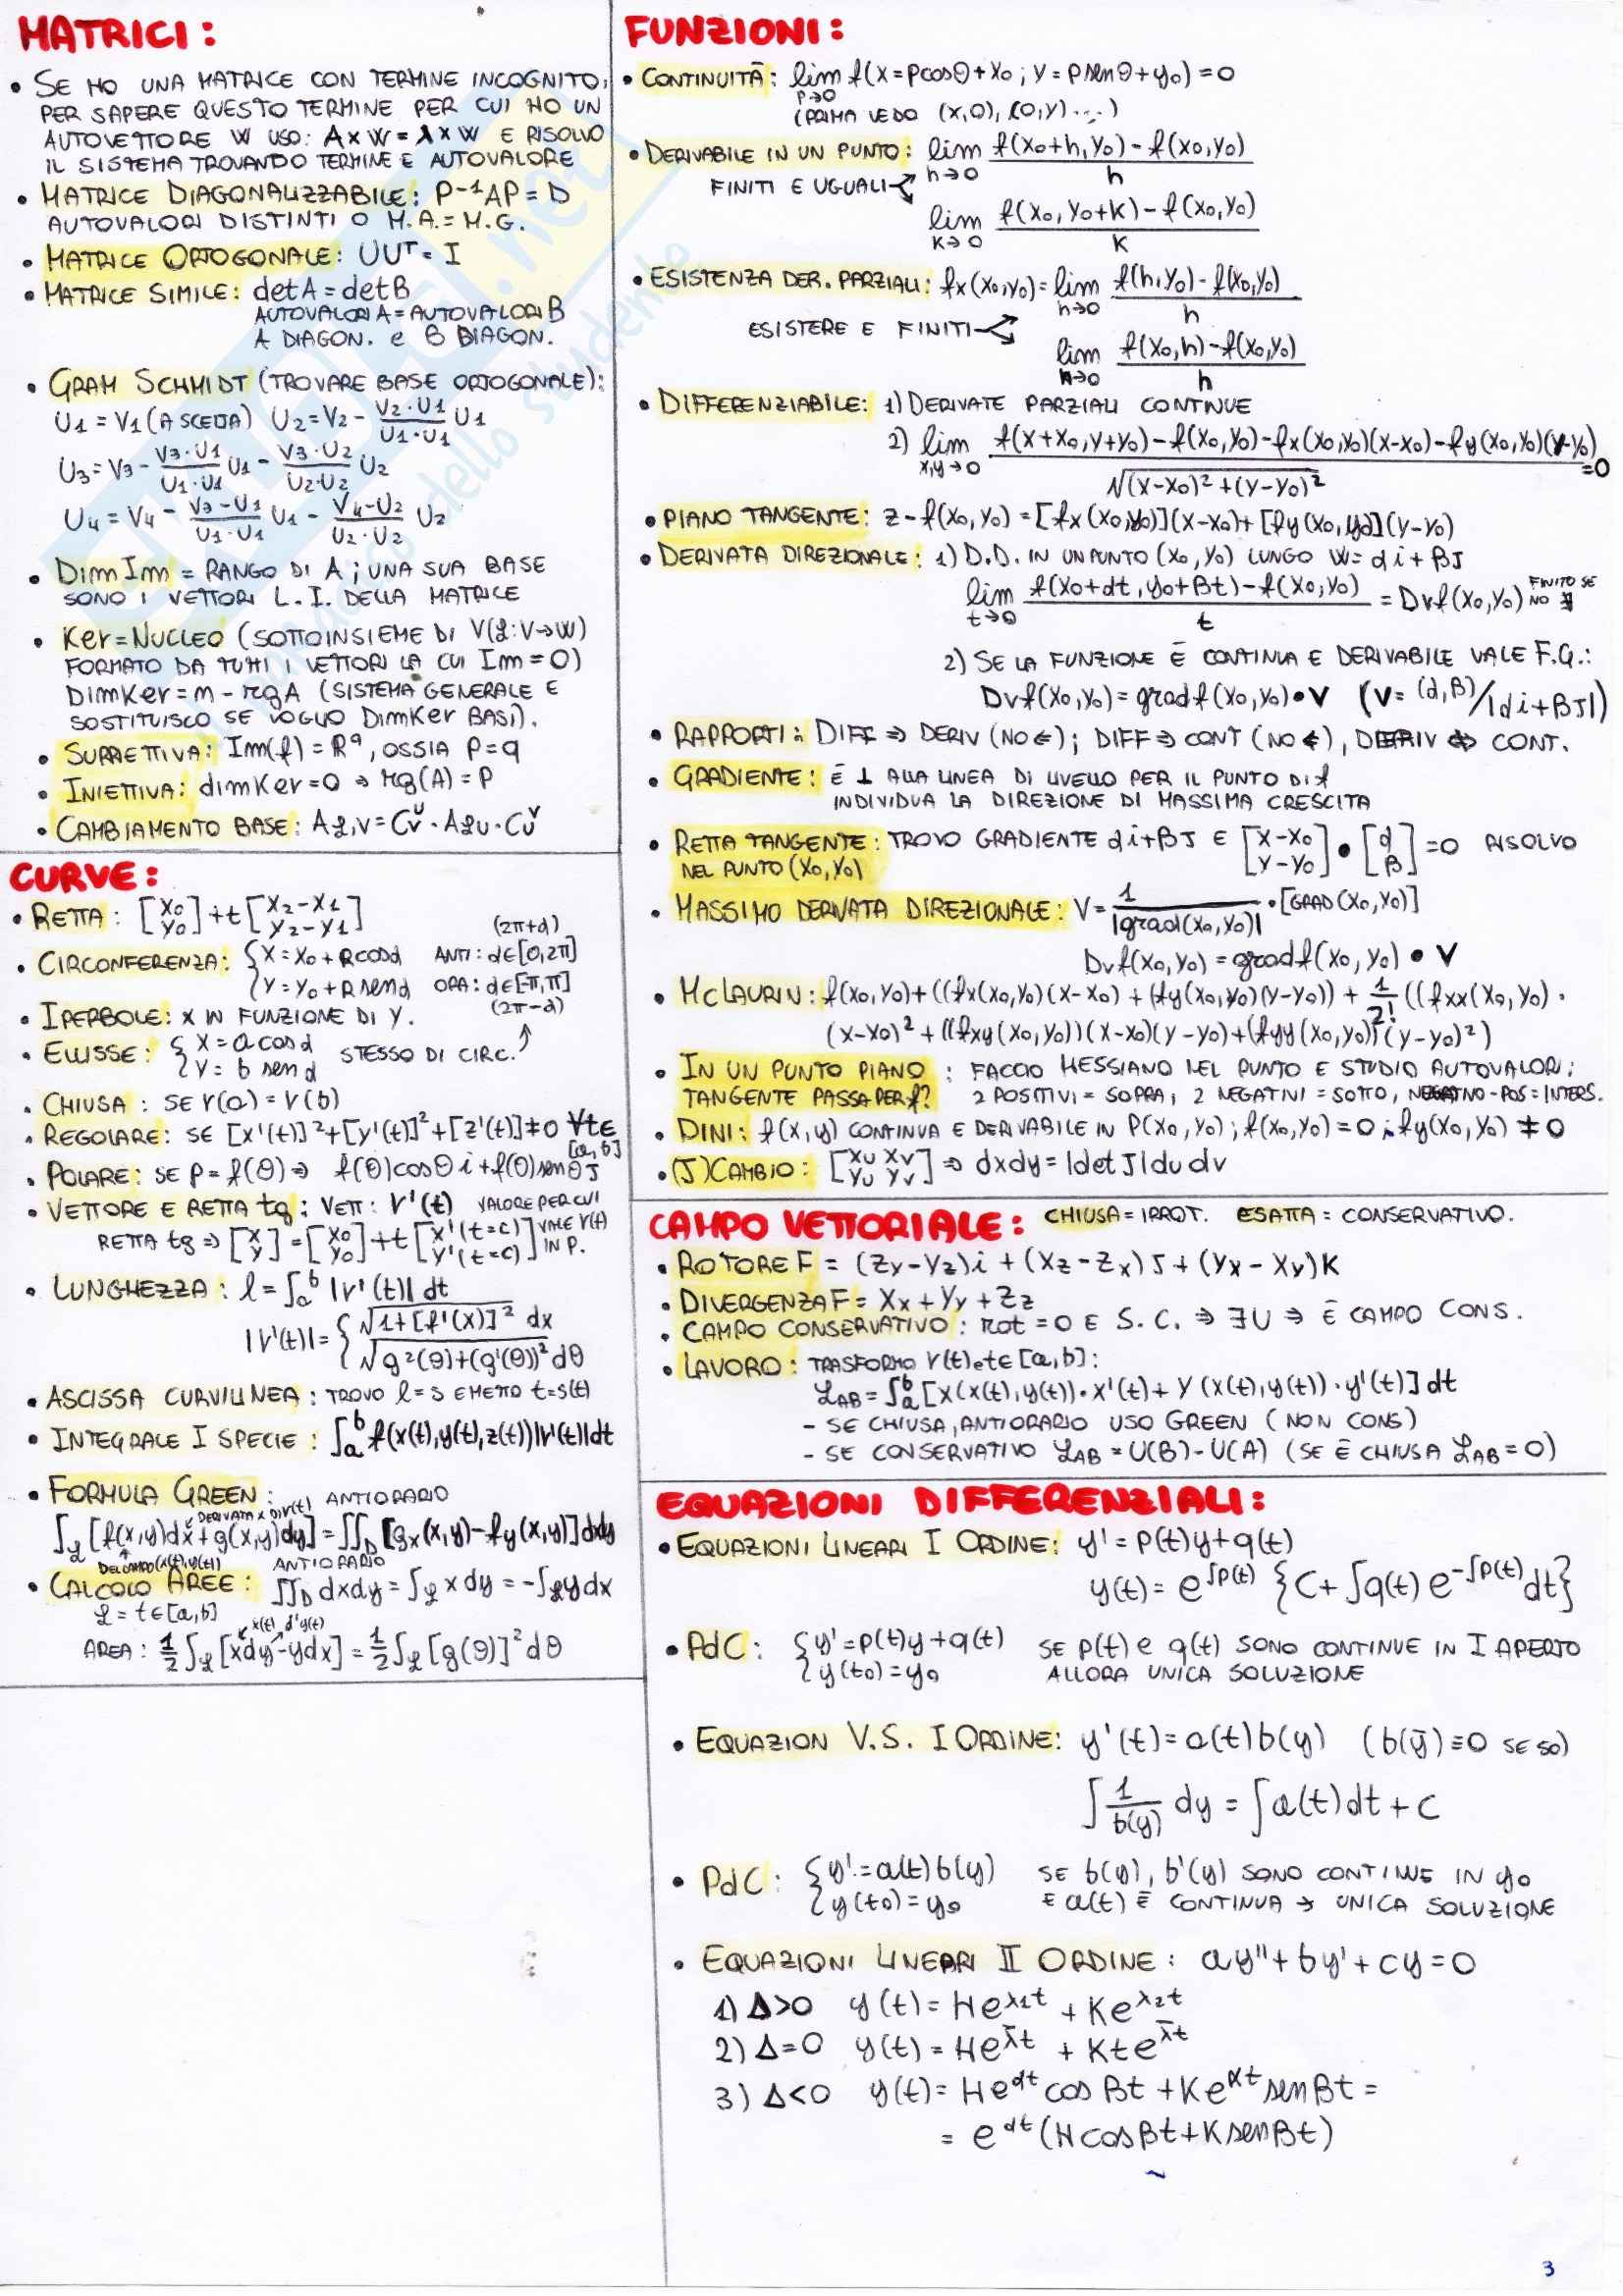 MATRICI:
• SE HO UNA MATRICE CON TERMINE INCOGNITO,
PER SAPERE QUESTO TERMINE PER CUI HO UN
AUTOVETTORE W USO: A×W=λ×W E RISOLVO
IL SISTEMA TROVANDO TERMINE E AUTOVALORE
• MATRICE DIAGONALIZZABILE: P-1AP=D
AUTOVALORI DISTINTI O M.A.=M.G.
• MATRICE ORTOGONALE: UUᵀ=I
• MATRICE SIMILE: detA=detB
AUTOVALORI A=AUTOVALORI B
A DIAGON. e B DIAGON.
• GRAM SCHMIDT (TROVARE BASE ORTOGONALE):
U1=V1(A SCELTA) U2=V2- V2·U1/U1·U1 U1
U3=V3- V3·U1/U1·U1 U1- V3·U2/U2·U2 U2
U4=V4- V3-U1/U1·U1 U1- V4-U2/U2·U2 U2
• DimIm = RANGO DI A; UNA SUA BASE
SONO I VETTORI L.I. DELLA MATRICE
• Ker=NUCLEO (SOTTOINSIEME DI V(L:V→W)
FORMATO DA TUTTI I VETTORI LA CUI Im=0)
DimKer=m-rgA (SISTEMA GENERALE E
SOSTITUISCO SE VOGLIO DimKer BASI).
• SURIETTIVA: Im(f)=R^q, OSSIA P=q
• INIETTIVA: dimKer=0 → rg(A)=P
• CAMBIAMENTO BASE: AL,V=CvU·ALU·CuV
CURVE:
• RETTA: [x0 y0]+t[x2-x1 y2-y1]
(2π+α)
• CIRCONFERENZA: {x=x0+Rcosα ANTI: α∈[0,2π]
y=y0+Rsenα ORA: α∈[-π,π]
(2π-α)
• IPERBOLE: X IN FUNZIONE DI Y.
• ELLISSE: {x=acosα STESSO DI CIRC.
y=b senα
• CHIUSA: SE r(a)=r(b)
• REGOLARE: SE [x'(t)]²+[y'(t)]²+[z'(t)]≠0 ∀t∈
[a,b]
• POLARE: SE ρ=f(θ)⇒ f(θ)cosθ i+f(θ)senθ J
• VETTORE E RETTA tg: VETT: r'(t) VALORE PER CUI
RETTA tg ⇒[x y]=[x0 y0]+t[x'(t=c) y'(t=c)] VALE r(t)
IN P.
• LUNGHEZZA: l=∫ab |r'(t)| dt
|r'(t)|={√1+[f'(x)]² dx
√g²(θ)+(g'(θ))² dθ
• ASCISSA CURVILINEA: TROVO l=s E METTO t=s(t)
• INTEGRALE I SPECIE: ∫ab f(x(t),y(t),z(t))|r'(t)|dt
• FORMULA GREEN: ANTIORARIO
DERIVATA X DI r(t)
∫L[f(x,y)dx+g(x,y)dy]=∬D[gx(x,y)-fy(x,y)]dxdy
DEL CAMPO (x(t),y(t)) ANTIORARIO
• CALCOLO AREE: ∬D dxdy=∫L x dy=-∫L y dx
L=t∈[a,b]
x(t) d'y(t)
AREA: 1/2∫L[xdy-ydx]=1/2∫L[g(θ)]²dθ
FUNZIONI:
• CONTINUITÀ: lim ρ→0 f(x=ρcosθ+x0; y=ρsenθ+y0)=0
(PRIMA VEDO (x,0), (0,y)...)
• DERIVABILE IN UN PUNTO: lim h→0 f(x0+h,y0)-f(x0,y0)/h
FINITI E UGUALI
lim k→0 f(x0,y0+k)-f(x0,y0)/k
• ESISTENZA DER. PARZIALI: fx(x0,y0)=lim h→0 f(h,y0)-f(x0,y0)/h
ESISTERE E FINITI
lim h→0 f(x0,h)-f(x0,y0)/h
• DIFFERENZIABILE: 1) DERIVATE PARZIALI CONTINUE
2) lim x,y→0 f(x+x0,y+y0)-f(x0,y0)-fx(x0,y0)(x-x0)-fy(x0,y0)(y-y0)/√(x-x0)²+(y-y0)² =0
• PIANO TANGENTE: z-f(x0,y0)=[fx(x0,y0)](x-x0)+[fy(x0,y0)](y-y0)
• DERIVATA DIREZIONALE: 1) D.D. IN UN PUNTO (x0,y0) LUNGO W=αi+βJ
lim t→0 f(x0+αt,y0+βt)-f(x0,y0)/t =Dvf(x0,y0) FINITO SE
NO ∄
2) SE LA FUNZIONE È CONTINUA E DERIVABILE VALE F.G.:
Dvf(x0,y0)=gradf(x0,y0)•V (V=(α,β)/|αi+βJ|)
• RAPPORTI: DIFF ⇒ DERIV (NO ⇐); DIFF ⇒ CONT (NO ⇐), DERIV ⇎ CONT.
• GRADIENTE: È ⊥ ALLA LINEA DI LIVELLO PER IL PUNTO DI f
INDIVIDUA LA DIREZIONE DI MASSIMA CRESCITA
• RETTA TANGENTE: TROVO GRADIENTE αi+βJ E [x-x0 y-y0]•[α β]=0 RISOLVO
NEL PUNTO (x0,y0)
• MASSIMO DERIVATA DIREZIONALE: V=1/|grad(x0,y0)|•[GRAD(x0,y0)]
Dvf(x0,y0)=gradf(x0,y0)•V
• McLAURIN: f(x0,y0)+((fx(x0,y0)(x-x0)+(fy(x0,y0)(y-y0))+1/2!((fxx(x0,y0)·
(x-x0)²+((fxy(x0,y0))(x-x0)(y-y0)+(fyy(x0,y0))(y-y0)²)
• IN UN PUNTO PIANO: FACCIO HESSIANO NEL PUNTO E STUDIO AUTOVALORI:
TANGENTE PASSA PER f? 2 POSITIVI=SOPRA, 2 NEGATIVI=SOTTO, NEGATIVO-POS=INTERS.
• DINI: f(x,y) CONTINUA E DERIVABILE IN P(x0,y0); f(x0,y0)=0; fy(x0,y0)≠0
• (J)CAMBIO: [xu xv yu yv] ⇒ dxdy=|detJ|du dv
CAMPO VETTORIALE: CHIUSA=IRROT. ESATTA=CONSERVATIVO.
• ROTORE F=(Zy-Yz)i+(Xz-Zx)J+(Yx-Xy)K
• DIVERGENZA F=Xx+Yy+Zz
• CAMPO CONSERVATIVO: rot=0 E S.C. ⇒ ∃U ⇒ È CAMPO CONS.
• LAVORO: TRASFORMO r(t) e t∈[a,b]:
LAB=∫ab[X(x(t),y(t))•x'(t)+Y(x(t),y(t))·y'(t)]dt
- SE CHIUSA, ANTIORARIO USO GREEN (NON CONS)
- SE CONSERVATIVO LAB=U(B)-U(A) (SE È CHIUSA LAB=0)
EQUAZIONI DIFFERENZIALI:
• EQUAZIONI LINEARI I ORDINE: y'=p(t)y+q(t)
y(t)=e^∫p(t){C+∫q(t)e^-∫p(t)dt}
• PdC: {y'=p(t)y+q(t) SE p(t) e q(t) SONO CONTINUE IN I APERTO
y(t0)=y0 ALLORA UNICA SOLUZIONE
• EQUAZION V.S. I ORDINE: y'(t)=a(t)b(y) (b(ȳ)=0 SE SO)
∫1/b(y) dy=∫a(t)dt+C
• PdC: {y'=a(t)b(y) SE b(y), b'(y) SONO CONTINUE IN y0
y(t0)=y0 E a(t) È CONTINUA → UNICA SOLUZIONE
• EQUAZIONI LINEARI II ORDINE: ay''+by'+cy=0
1) Δ>0 y(t)=He^λ1t+Ke^λ2t
2) Δ=0 y(t)=He^λ̄t+Kte^λ̄t
3) Δ<0 y(t)=He^αt cosβt+Ke^αt senβt=
=e^αt(Hcosβt+Ksenβt)
3